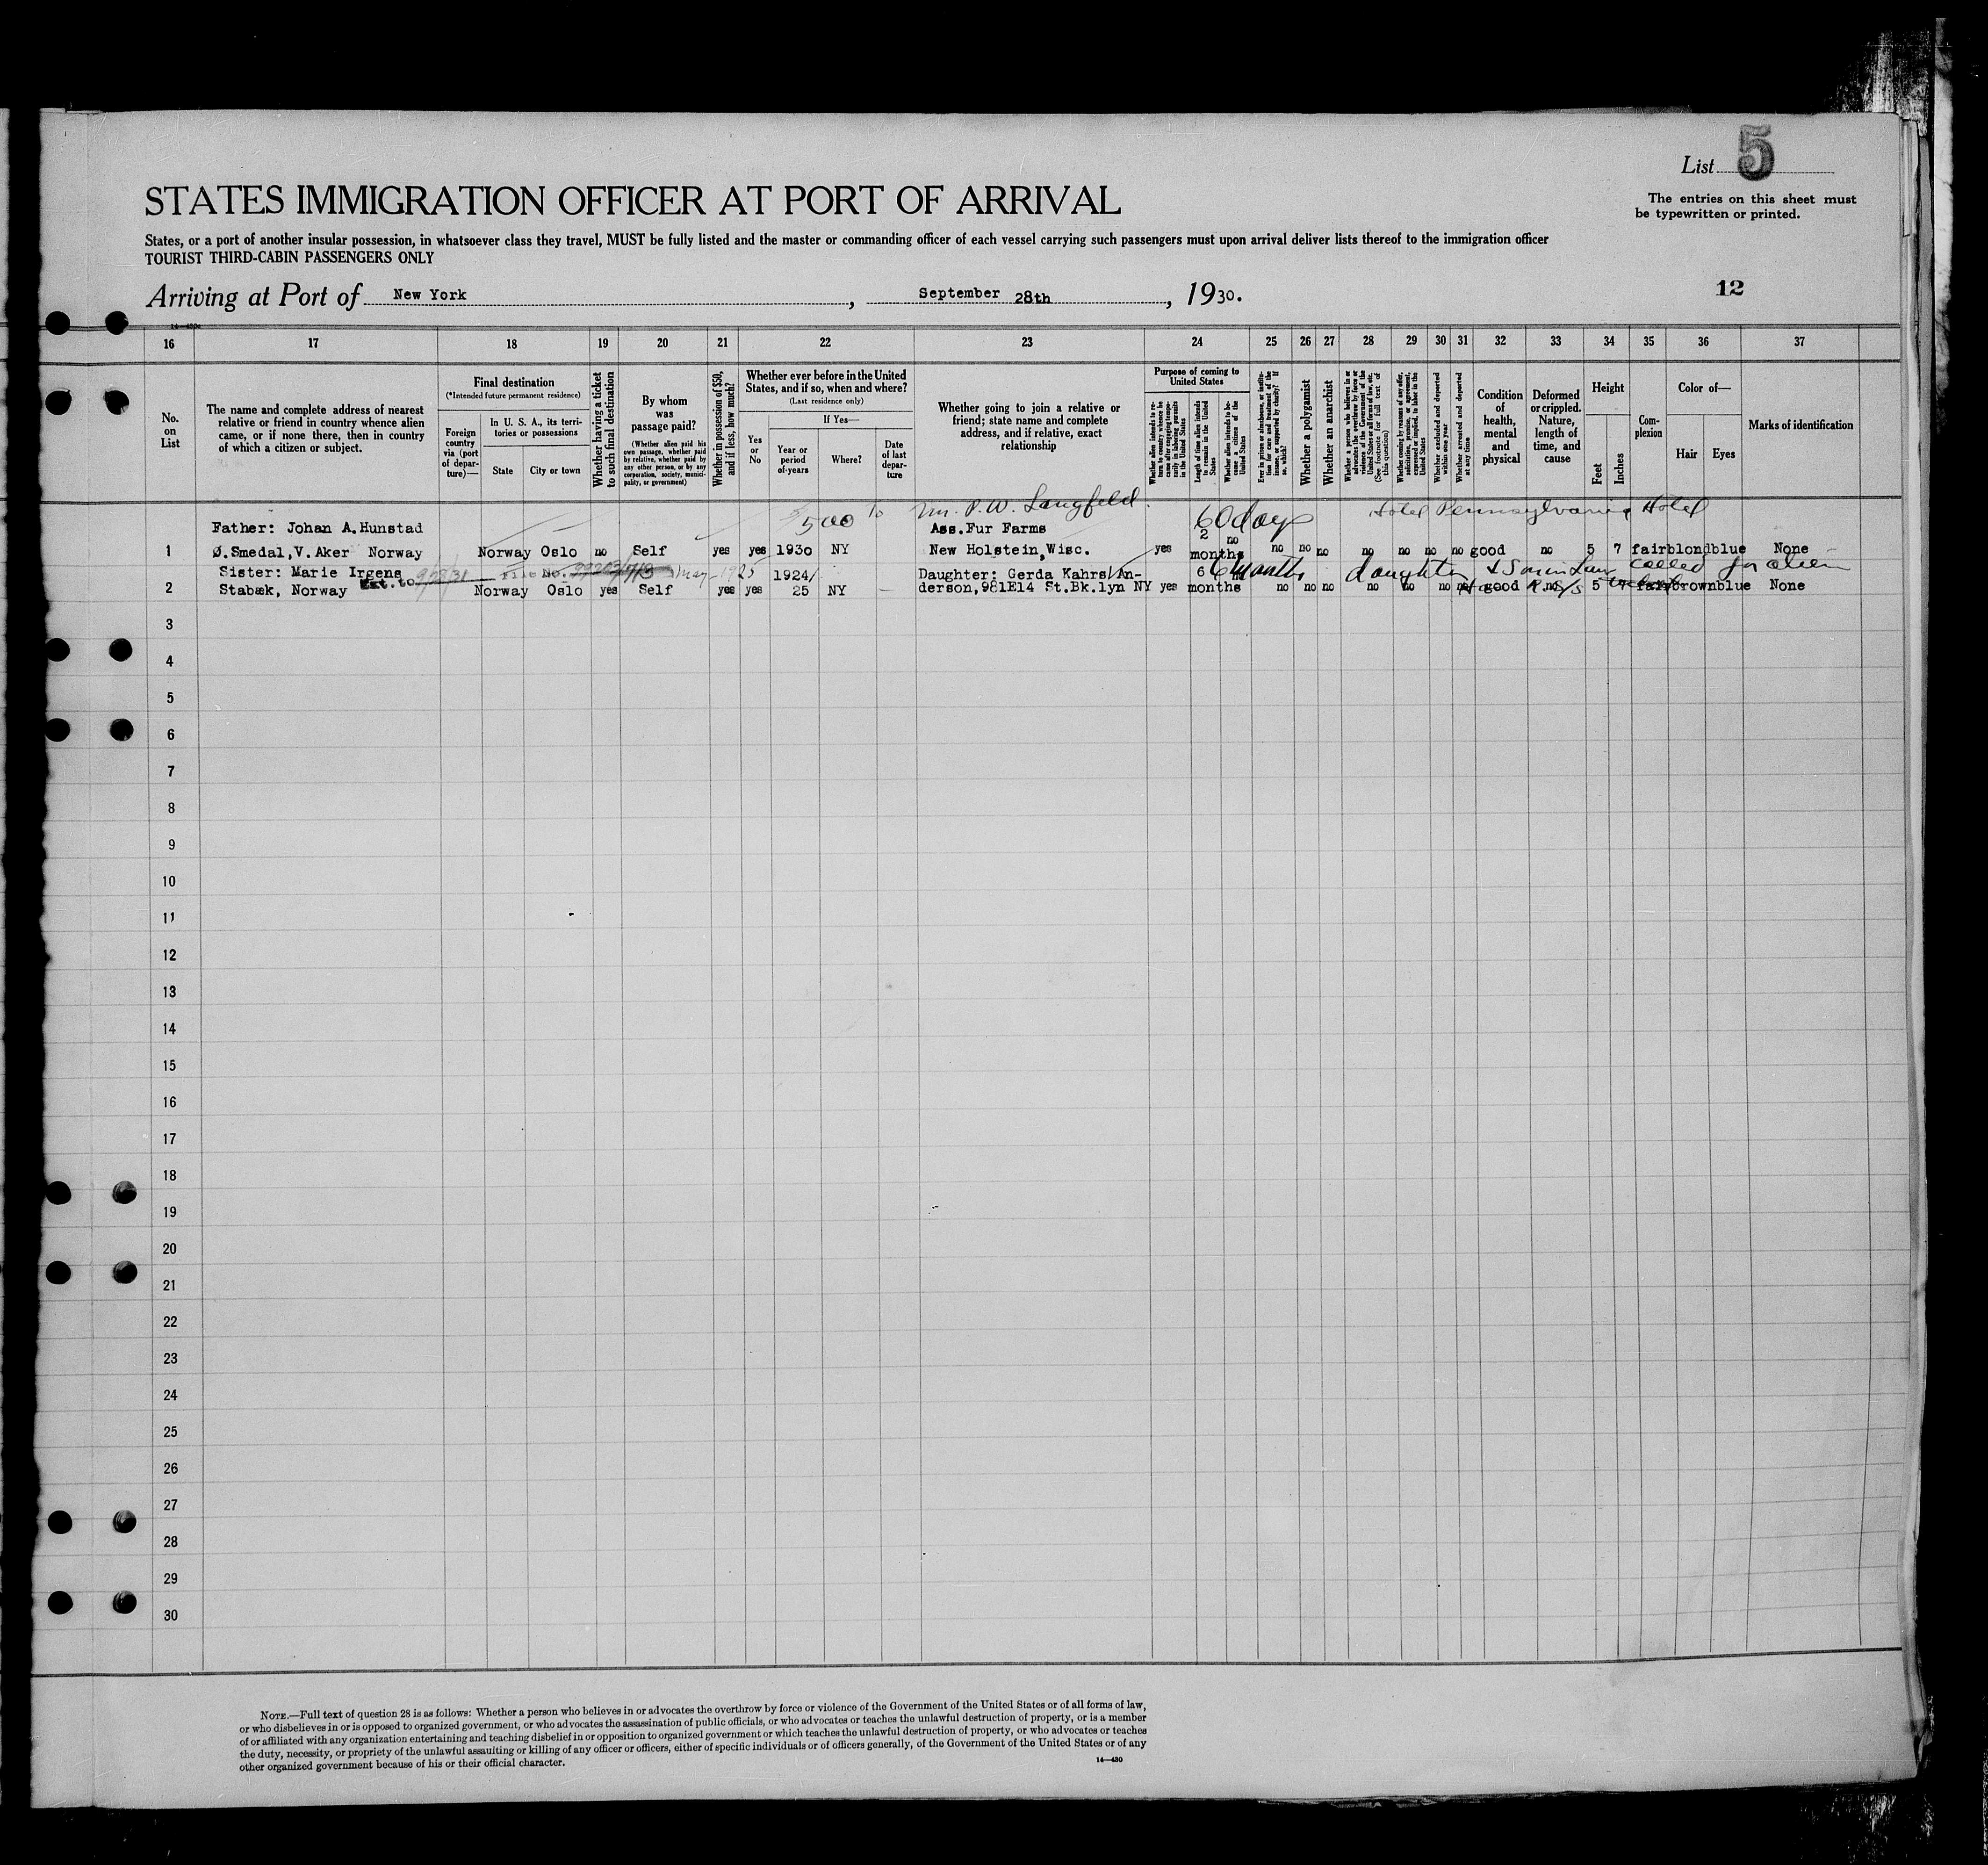 List 5
The entries on this sheet must
be typewritten or printed.
STATES IMMIGRATION OFFICER AT PORT OF ARRIVAL
States, or a port of another insular possession, in whatsoever class they travel, MUST be fully listed and the master or commanding officer of each vessel carrying such passengers must upon arrival deliver lists thereof to the immigration officer
TOURIST THIRD-CABIN PASSENGERS ONLY
Arriving at Port of New York, September 28th, 1930.
12
16 17 18 19 20 21 22 23 24 25 26 27 28 29 30 31 32 33 34 35 36 37
No.
on
List
The name and complete address of nearest
relative or friend in country whence alien
came, or if none there, then in country
of which a citizen or subject.
Final destination
(*Intended future permanent residence)
Foreign
country
via (port
of depar-
ture)—
In U. S. A., its terri-
tories or possessions
State
City or town
Whether having a ticket
to such final destination
By whom
was
passage paid?
(Whether alien paid his
own passage, whether paid
by relative, whether paid by
any other person, or by any
corporation, society, munici-
pality, or government)
Whether in possession of $50,
and if less, how much?
Whether ever before in the United
States, and if so, when and where?
(Last residence only)
Yes
or
No
If Yes—
Year or
period
of-years
Where?
Date
of last
depar-
ture
Whether going to join a relative or
friend; state name and complete
address, and if relative, exact
relationship
Purpose of coming to
United States
Whether alien intends to re-
turn to country whence he
came after engaging tempo-
rarily in laboring pursuits
in the United States
Length of time alien intends
to remain in the United
States
Whether alien intends to be-
come a citizen of the
United States
Ever in prison or almshouse, or institu-
tion for care and treatment of the
insane, or supported by charity? If
so, which?
Whether a polygamist
Whether an anarchist
Whether a person who believes in or
advocates the overthrow by force or
violence of the Government of the
United States or all forms of law, etc.
(See footnote for full text of
this question)
Whether coming by reason of any offer,
solicitation, promise, or agreement,
expressed or implied, to labor in the
United States
Whether excluded and deported
within one year
Whether arrested and deported
at any time
Condition
of
health,
mental
and
physical
Deformed
or crippled.
Nature,
length of
time, and
cause
Height
Feet
Inches
Com-
plexion
Color of—
Hair
Eyes
Marks of identification
500 to Mr. P. W. Langfeld. 60 days Hotel Pennsylvania Hotel
Father: Johan A.Hunstad Ass.Fur Farms 2 no
1 Ø.Smedal,V.Aker Norway Norway Oslo no Self yes yes 1930 NY New Holstein,Wisc. yes months no no no no no no no good no 5 7 fair blond blue None
Sister: Marie Irgens File No. May-1925 1924/ Daughter: Gerda Kahrs An- 6 6 months daughter & Son in Law called for alien
Ext. to
2 Stabæk, Norway Norway Oslo yes Self yes yes 25 NY derson,981E14 St.Bk.lyn NY yes months no no no no no no no good no 5 7 fair brown blue None
3
4
5
6
7
8
9
10
11
12
13
14
15
16
17
18
19
20
21
22
23
24
25
26
27
28
29
30
NOTE.—Full text of question 28 is as follows: Whether a person who believes in or advocates the overthrow by force or violence of the Government of the United States or of all forms of law,
or who disbelieves in or is opposed to organized government, or who advocates the assassination of public officials, or who advocates or teaches the unlawful destruction of property, or is a member
of or affiliated with any organization entertaining and teaching disbelief in or opposition to organized government or which teaches the unlawful destruction of property, or who advocates or teaches
the duty, necessity, or propriety of the unlawful assaulting or killing of any officer or officers, either of specific individuals or of officers generally, of the Government of the United States or of any
other organized government because of his or their official character.
14—430